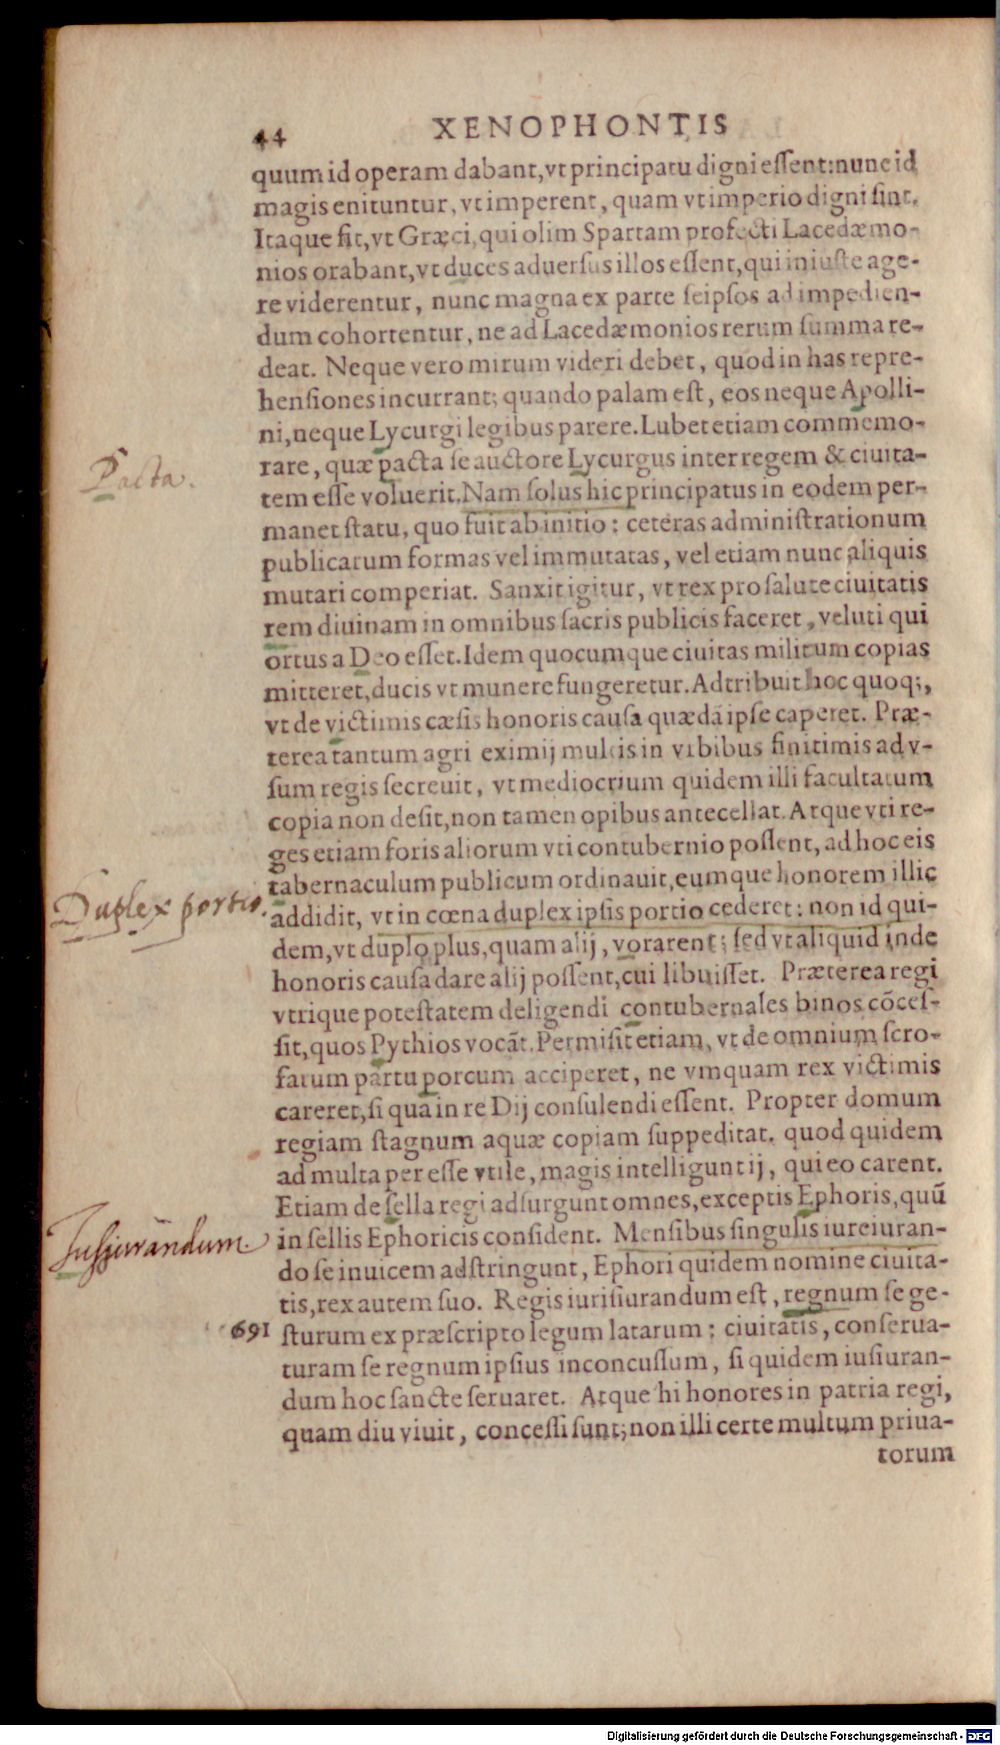 44 XENOPHONTIS
quum id operam dabant, vt principatu digni eſſent: nunc id
magis enituntur, vt imperent, quam vt imperio digni ſint.
Itaque fit, vt Græci, qui olim Spartam profecti Lacedæmo-
nios orabant, vt duces aduerſus illos eſſent, qui iniuſte age-
re viderentur, nunc magna ex parte ſeipſos ad impedien-
dum cohortentur, ne ad Lacedæmonios rerum ſumma re-
deat. Neque vero mirum videri debet, quod in has repre-
henſiones incurrant; quando palam eſt, eos neque Apolli-
ni, neque Lycurgi legibus parere. Lubet etiam commemo-
rare, quæ pacta ſe auctore Lycurgus inter regem & ciuita-
Pacta.
tem eſſe voluerit. Nam ſolus hic principatus in eodem per-
manet ſtatu, quo fuit ab initio: ceteras adminiſtrationum
publicarum formas vel immutatas, vel etiam nunc aliquis
mutari comperiat. Sanxit igitur, vt rex pro ſalute ciuitatis
rem diuinam in omnibus ſacris publicis faceret, veluti qui
ortus a Deo eſſet. Idem quocumque ciuitas militum copias
mitteret, ducis vt munere fungeretur. Adtribuit hoc quoq;,
vt de victimis cæſis honoris cauſa quædã ipſe caperet. Præ-
terea tantum agri eximij multis in vrbibus finitimis ad v-
ſum regis ſecreuit, vt mediocrium quidem illi facultatum
copia non deſit, non tamen opibus antecellat. Atque vti re-
ges etiam foris aliorum vti contubernio poſſent, ad hoc eis
tabernaculum publicum ordinauit, eumque honorem illic
Duplex portio.
addidit, vt in cœna duplex ipſis portio cederet: non id qui-
dem, vt duplo plus, quam alij, vorarent; ſed vt aliquid inde
honoris cauſa dare alij poſſent, cui libuiſſet. Præterea regi
vtrique poteſtatem deligendi contubernales binos cõceſ-
ſit, quos Pythios vocãt. Permiſit etiam, vt de omnium ſcro-
farum partu porcum acciperet, ne vmquam rex victimis
careret, ſi qua in re Dij conſulendi eſſent. Propter domum
regiam ſtagnum aquæ copiam ſuppeditat. quod quidem
ad multa per eſſe vtile, magis intelligunt ij, qui eo carent.
Etiam de ſella regi adſurgunt omnes, exceptis Ephoris, quũ
Jusjurandum.
in ſellis Ephoricis conſident. Menſibus ſingulis iureiuran-
do ſe inuicem adſtringunt, Ephori quidem nomine ciuita-
tis, rex autem ſuo. Regis iuriſiurandum eſt, regnum ſe ge-
691 ſturum ex præſcripto legum latarum: ciuitatis, conſerua-
turam ſe regnum ipſius inconcuſſum, ſi quidem iuſiuran-
dum hoc ſancte ſeruaret. Atque hi honores in patria regi,
quam diu viuit, conceſſi ſunt; non illi certe multum priua-
torum
Digitalisierung gefördert durch die Deutsche Forschungsgemeinschaft - DFG